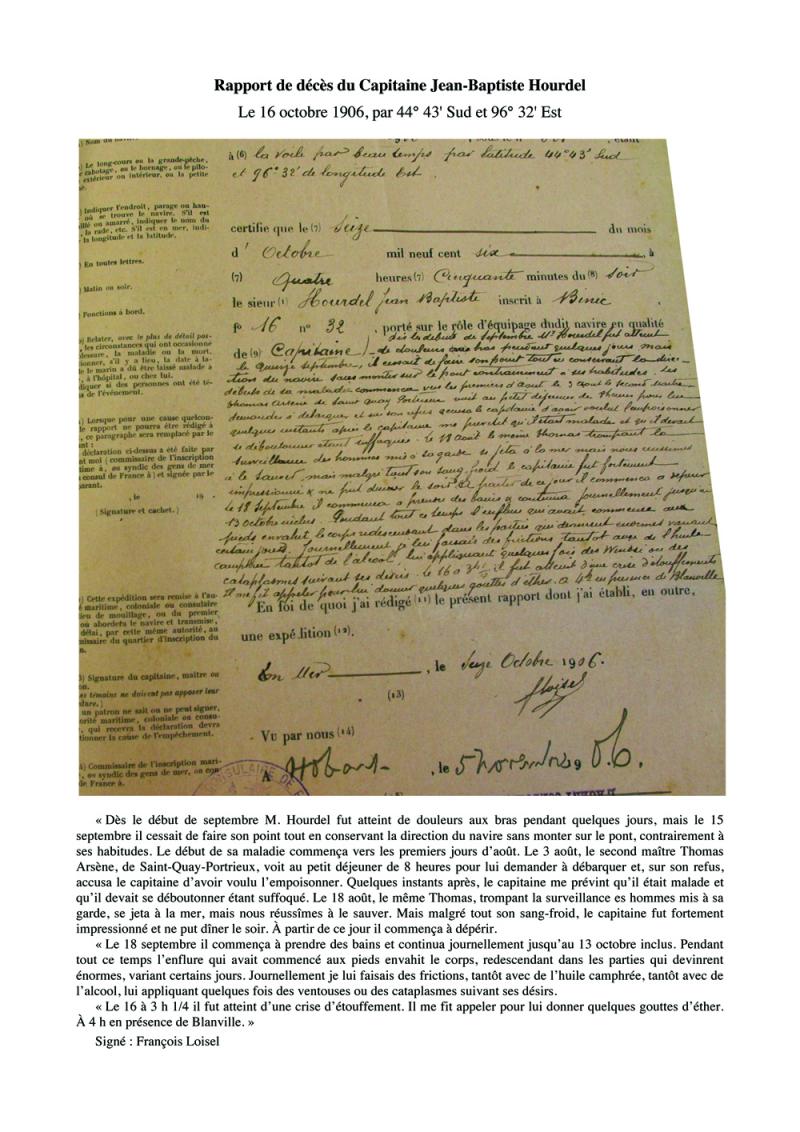 Rapport de décès du Capitaine Jean-Baptiste Hourdel
Le 16 octobre 1906, par 44° 43' Sud et 96° 32' Est
à (6) la voile par beau temps par latitude 44°43' Sud
et 96° 32' de longitude Est.
certifie que le (7) Seize du mois
d' Octobre mil neuf cent six , à
(7) Quatre heures (7) Cinquante minutes du (8) soir
le sieur (1) Hourdel Jean Baptiste inscrit à Binic
f° 16 n° 32 , porté sur le rôle d'équipage dudit navire en qualité
dès le début de septembre Mr Hourdel fut atteint
de (9) Capitaine) de douleurs aux bras pendant quelques jours mais
le quinze septembre, il cessait de faire son point tout en conservant la direc-
tion du navire sans monter sur le pont contrairement à ses habitudes. Les
débuts de sa maladie commença vers les premiers d'août. le 3 août le second maître
Thomas Arsène de Saint Quay Portrieux vint au petit déjeuner de 8 heures pour lui
demander à débarquer et sur son refus accusa le capitaine d'avoir voulut l'empoisonner
quelques instants après le capitaine me prévint qu'il était malade et qu'il devait
se déboutonner étant suffoqué. le 18 août le même Thomas trompant la
surveillance des hommes mis à sa garde se jeta à la mer mais nous réussîmes
à le sauver mais malgré tout son sang froid le capitaine fut fortement
impressionné & ne put dîner le soir à partir de ce jour il commença à dépérir
le 18 septembre il commença à prendre des bains & continua journellement jusqu'au
13 octobre inclus. Pendant tout ce temps l'enflure qui avait commencé aux
pieds envahit le corps redescendant dans les parties qui devinrent énormes variant
certains jours. Journellement je lui faisais des frictions tantôt avec de l'huile
camphrée tantôt de l'alcool, lui appliquant quelques fois des ventouses ou des
cataplasmes suivant ses désirs. le 16 à 3h 1/4 il fut atteint d'une crise d'étouffements
Il me fit appeler pour lui donner quelques gouttes d'éther. à 4h en présence de Blanville
En foi de quoi j'ai rédigé (11) le présent rapport dont j'ai établi, en outre,
une expédition (12).
En Mer , le Seize Octobre 1906.
(13)
Floisel
Vu par nous (14)
A Hobart , le 5 novembre 1906.
) Nom du
) Le long-cours ou la grande-pêche,
cabotage, ou le bornage, ou le pilo-
extérieur ou intérieur, ou la petite
) Indiquer l'endroit, parage ou hau-
où se trouve le navire. S'il est
ou amarré, indiquer le nom du
la rade, etc. S'il est en mer, indi-
la longitude et la latitude.
) En toutes lettres.
) Matin ou soir.
) Fonctions à bord.
) Relater, avec le plus de détail pos-
, les circonstances qui ont occasionné
blessure, la maladie ou la mort.
, s'il y a lieu, la date à la-
le marin a dû être laissé malade à
, à l'hôpital, ou chez lui.
diquer si des personnes ont été té-
s de l'événement.
) Lorsque pour une cause quelcon-
rapport ne pourra être rédigé à
, ce paragraphe sera remplacé par le
ant :
déclaration ci-dessus a été faite par
nt moi ( commissaire de l'inscription
time à , ou syndic des gens de mer
consul de France à ) et signée par le
parant.
, le 19 .
(Signature et cachet.)
) Cette expédition sera remise à l'au-
é maritime, coloniale ou consulaire
lieu de mouillage, ou du premier
où abordera le navire et transmise,
délai, par cette même autorité, au
missaire du quartier d'inscription du
) Signature du capitaine, maître ou
on.
es témoins ne doivent pas apposer leur
un patron ne sait ou ne peut signer,
orité maritime, coloniale ou consu-
, qui recevra la déclaration devra
tionner la cause de l'empêchement.
) Commissaire de l'inscription mari-
, ou syndic des gens de mer, ou con-
de France à
CONSULAIRE DE
« Dès le début de septembre M. Hourdel fut atteint de douleurs aux bras pendant quelques jours, mais le 15
septembre il cessait de faire son point tout en conservant la direction du navire sans monter sur le pont, contrairement à
ses habitudes. Le début de sa maladie commença vers les premiers jours d'août. Le 3 août, le second maître Thomas
Arsène, de Saint-Quay-Portrieux, voit au petit déjeuner de 8 heures pour lui demander à débarquer et, sur son refus,
accusa le capitaine d'avoir voulu l'empoisonner. Quelques instants après, le capitaine me prévint qu'il était malade et
qu'il devait se déboutonner étant suffoqué. Le 18 août, le même Thomas, trompant la surveillance es hommes mis à sa
garde, se jeta à la mer, mais nous réussîmes à le sauver. Mais malgré tout son sang-froid, le capitaine fut fortement
impressionné et ne put dîner le soir. À partir de ce jour il commença à dépérir.
« Le 18 septembre il commença à prendre des bains et continua journellement jusqu'au 13 octobre inclus. Pendant
tout ce temps l'enflure qui avait commencé aux pieds envahit le corps, redescendant dans les parties qui devinrent
énormes, variant certains jours. Journellement je lui faisais des frictions, tantôt avec de l'huile camphrée, tantôt avec de
l'alcool, lui appliquant quelques fois des ventouses ou des cataplasmes suivant ses désirs.
« Le 16 à 3 h 1/4 il fut atteint d'une crise d'étouffement. Il me fit appeler pour lui donner quelques gouttes d'éther.
À 4 h en présence de Blanville. »
Signé : François Loisel